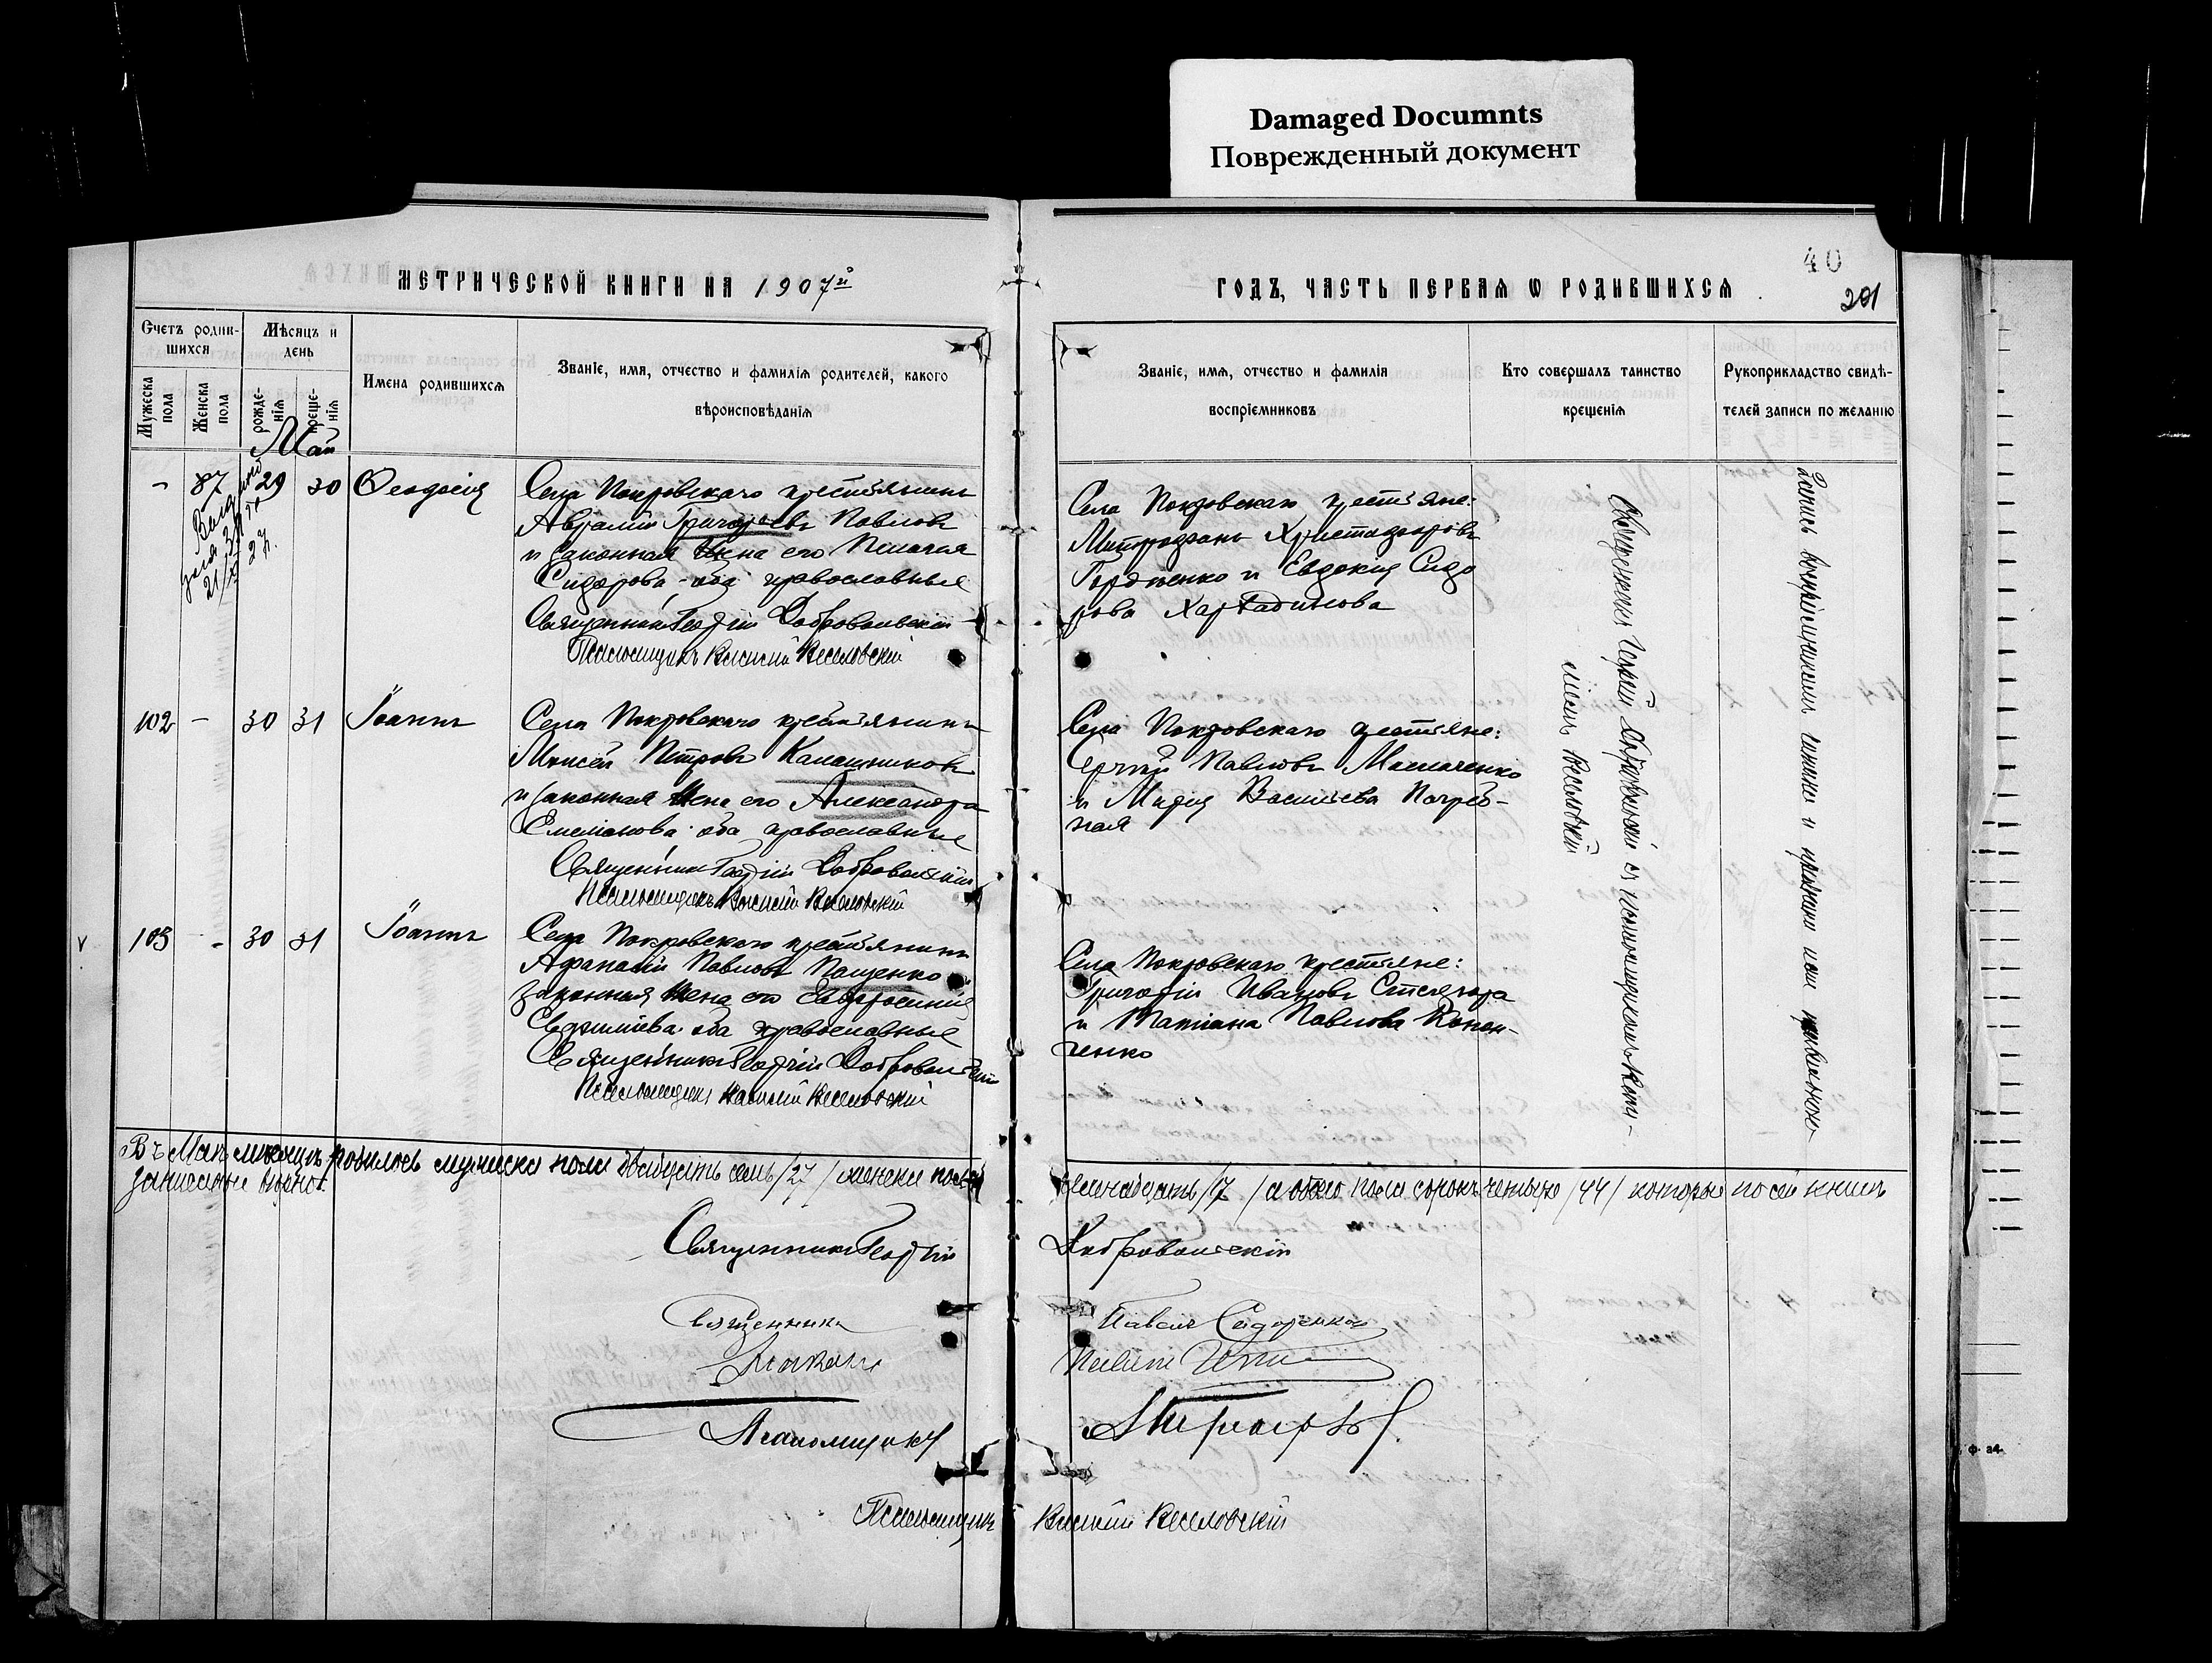 Damaged Documnts
Поврежденный документ
40
201
МЕТРИЧЕСКОЙ КНИГИ НА 1907й
ГОДЪ, ЧАСТЬ ПЕРВАЯ Ѡ РОДИВШИХСЯ
Счетъ родив-
шихся
Мужеска пола
Женска пола
Мѣсяцъ и
день
рожде-
нія
креще-
нія
Имена родившихся
Званіе, имя, отчество и фамилія родителей, какого
вѣроисповѣданія
Званіе, имя, отчество и фамилія
воспріемниковъ
Кто совершалъ таинство
крещенія
Рукоприкладство свидѣ-
телей записи по желанію
Май
- 87 29 30 Ѳеодосія
21/X 27 г.
Села Покровскаго крестьянинъ
Аврамій Григорьевъ Павловъ
и законная жена его Пелагія
Сидорова - оба православные
Священникъ Георгій Добровольскій
Псаломщикъ Василій Веселовскій
Села Покровскаго крестьяне:
Митрофанъ Христофоровъ
Гордіенко и Евдокія Сидо
рова
102 - 30 31 Іоаннъ
Села Покровскаго крестьянинъ
Моисей Петровъ Калашниковъ
и законная жена его Александра
Емеліанова оба православные
Священникъ Георгій Добровольскій
Псаломщикъ Василій Веселовскій
Села Покровскаго крестьяне:
Сергій Павловъ Маслаченко
и Марія Васильева Погреб-
ная
v 103 - 30 31 Іоаннъ
Села Покровскаго крестьянинъ
Афанасій Павловъ Пащенко и
законная жена его Евфросинія
оба православные
Священникъ Георгій Добровольскій
Псаломщикъ Василій Веселовскій
Села Покровскаго крестьяне:
Григорій Ивановъ
и Татіана Павлова Конон-
ченко
Священникъ Георгій Добровольскій съ псаломщикомъ Васи-
ліемъ Веселовскій
Въ Маѣ мѣсяцѣ родилось мужеска пола двадцать семь /27/ женска пола семнадцать /17/ а обоего пола сорокъ четыре /44/ которые по сей книгѣ
записаны вѣрно.
Священникъ Георгій Добровольскій
Священникъ Павелъ Сидоренко
Псаломщикъ
Псаломщикъ Василій Веселовскій
ф. 34.